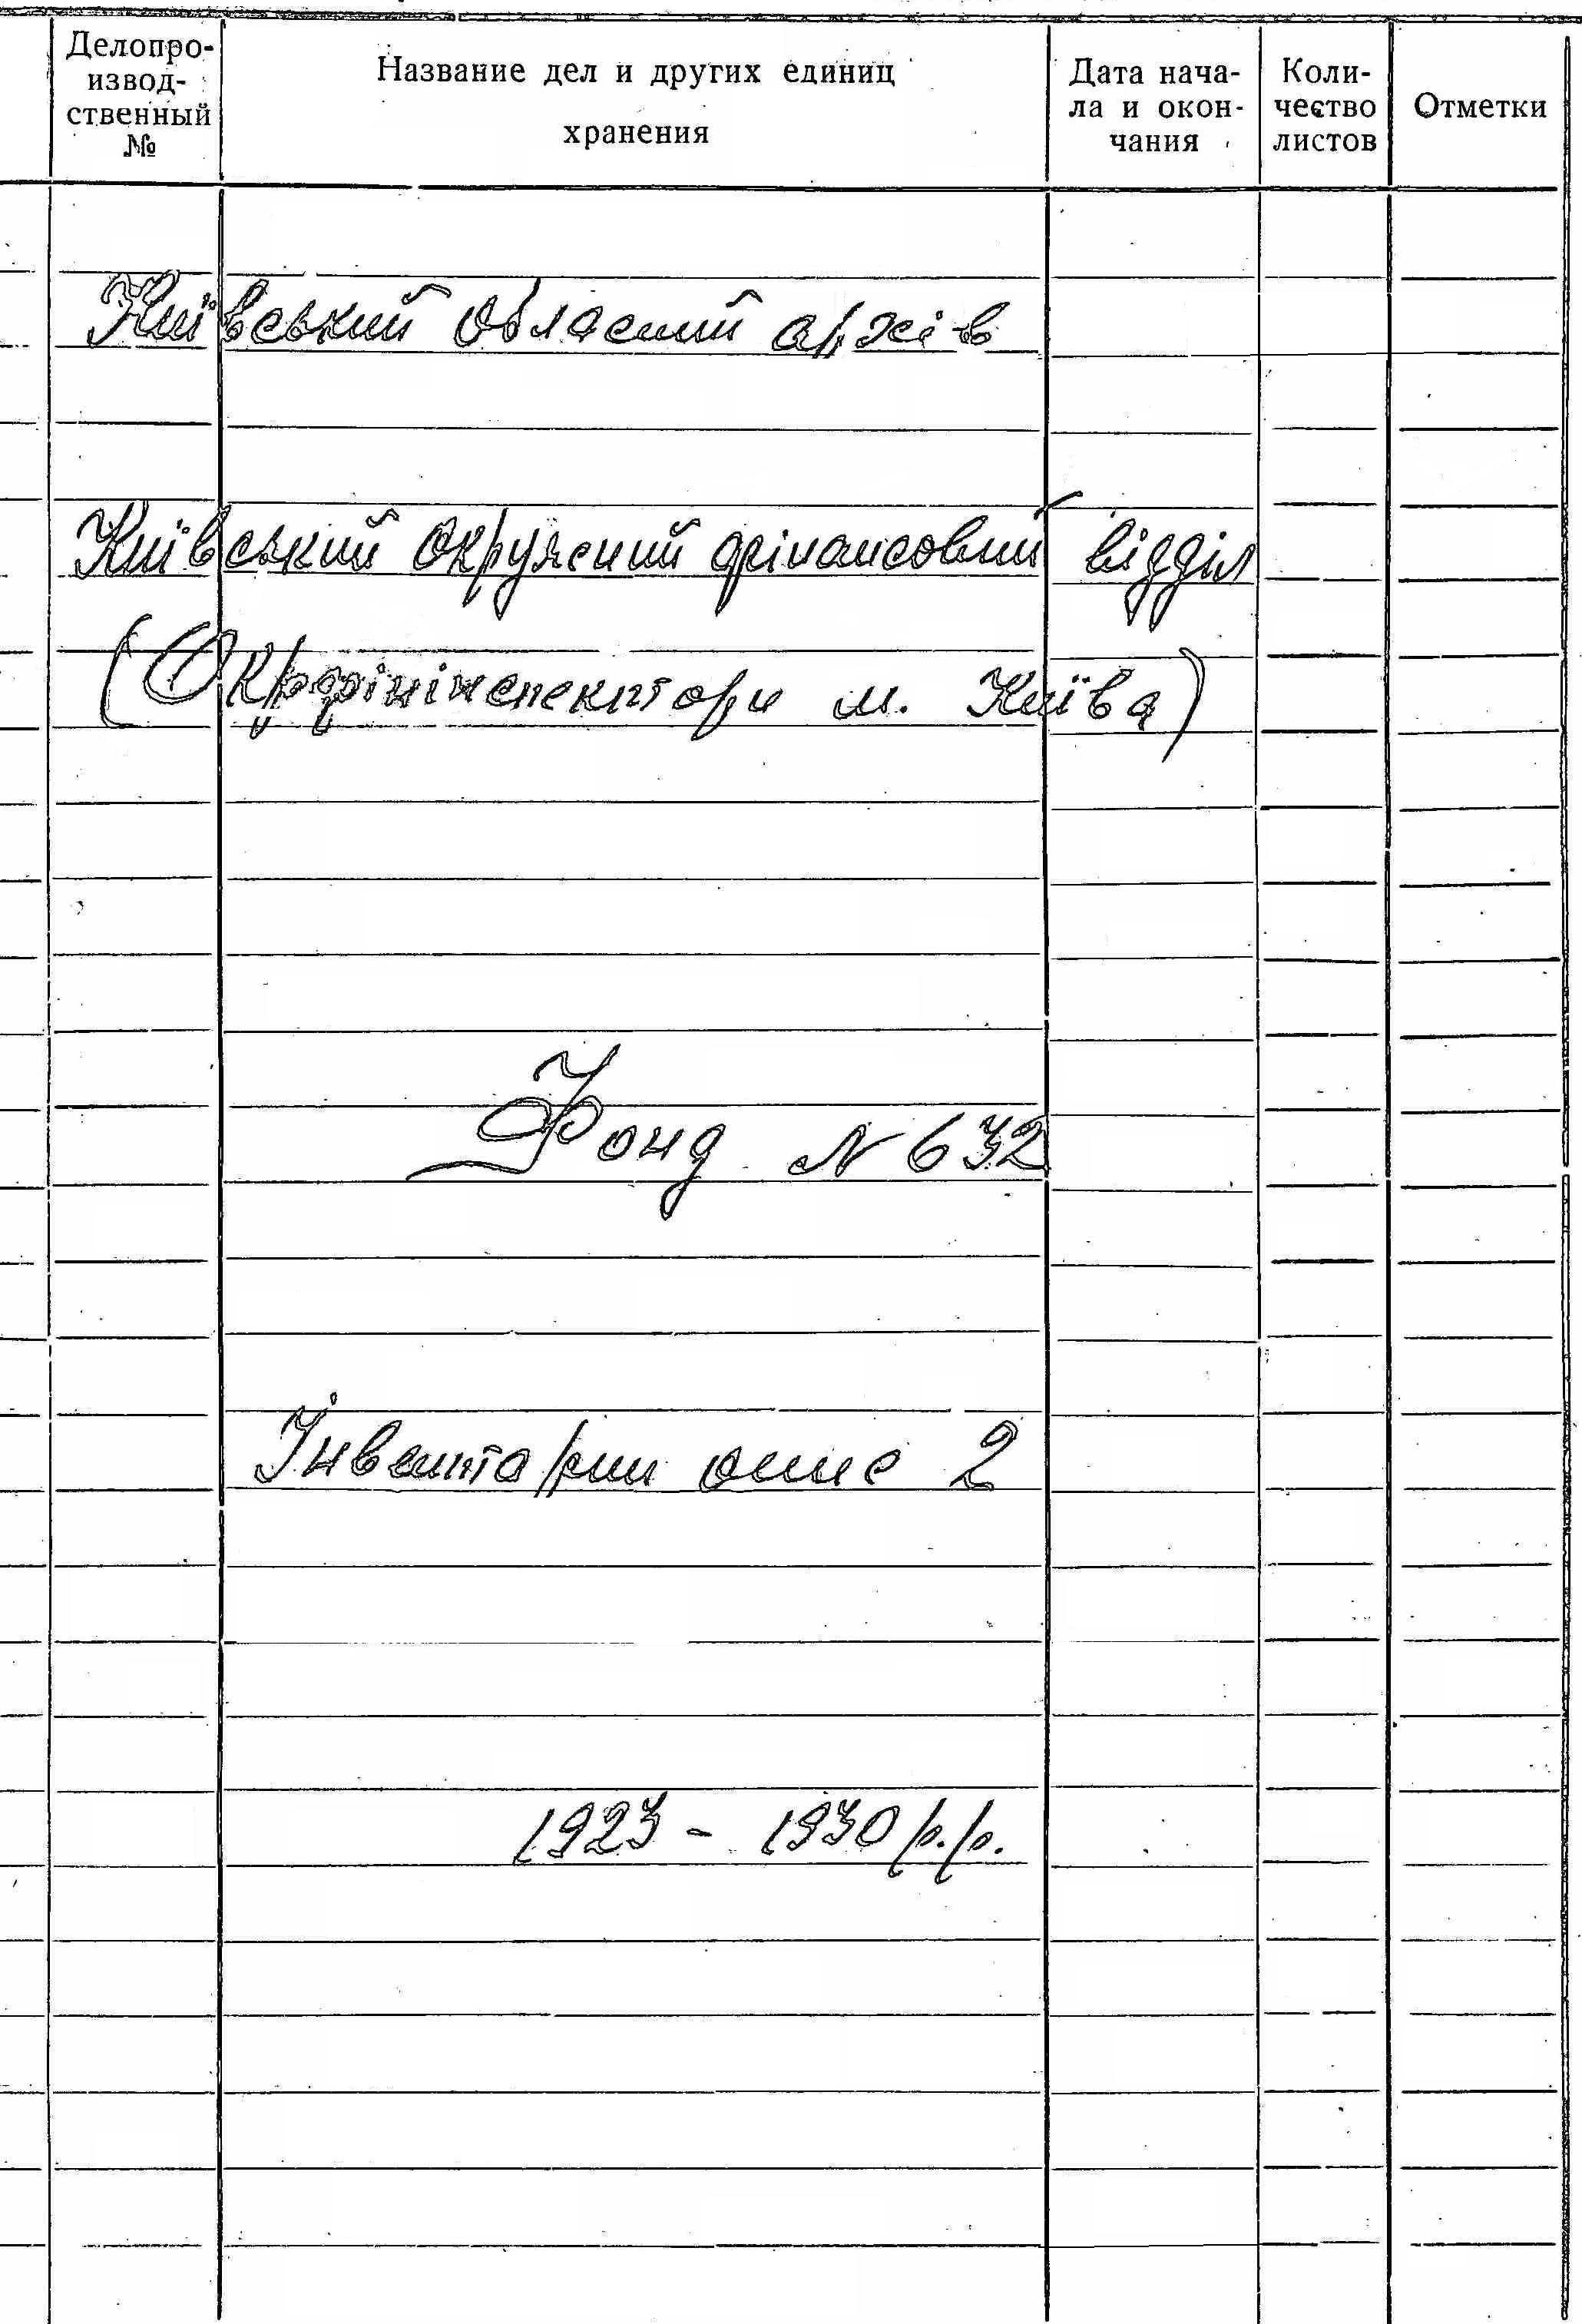 Делопро-
извод-
ственный
№
Название дел и других единиц
хранения
Дата нача-
ла и окон-
чания
Коли-
чество
листов
Отметки
Київський обласний архів
Київський окружний фінансовий відділ
(Окрфінінспектори м. Київа)
Фонд N 632
Інвентарний опис 2
1923 - 1930 р.р.